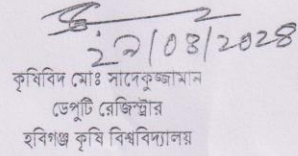 ২৯/০৪/২০২৪
কৃষিবিদ মোঃ সাদেকুজ্জামান
ডেপুটি রেজিস্ট্রার
হবিগঞ্জ কৃষি বিশ্ববিদ্যালয়